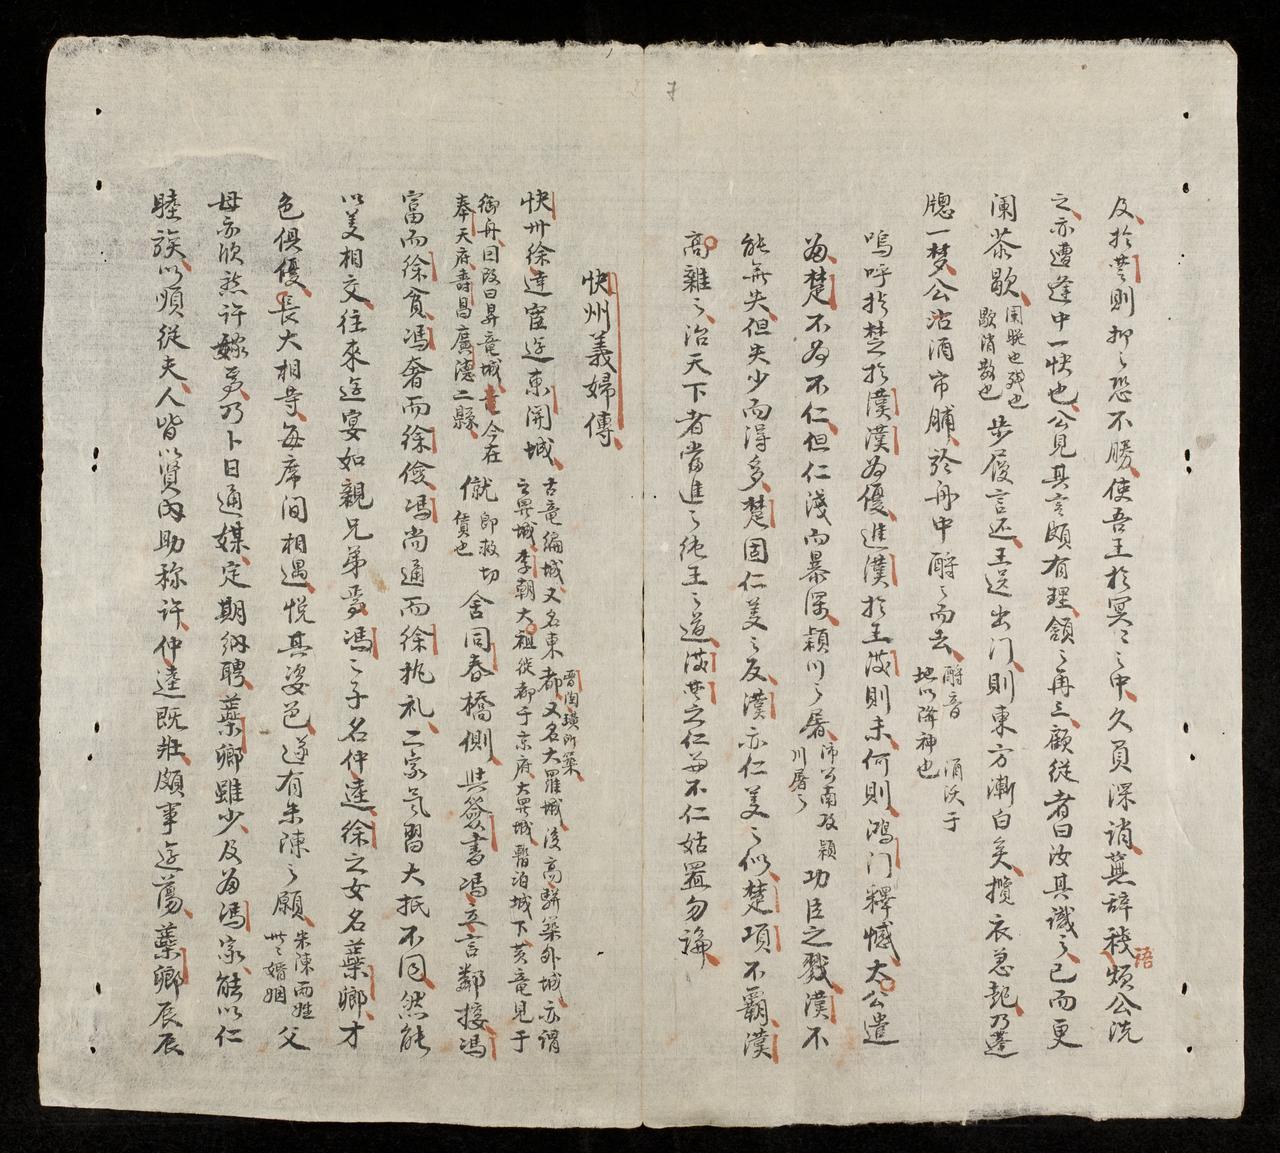 及於楚則抑之恐不勝使吾王於冥〻之中久負深誚蕪辭穢煩公洗
語
之亦遭逢中一快也公見其言頗有理頷之再三顧從者曰汝其識之已而更
闌茶歇
闌晚也残也
歇消散也
步履言还王送出门則東方漸白矣攬衣急起乃蓬
牕一梦公沽酒市脯於舟中酹之而去
酹音 酒沃于
地以降神也
嗚呼於楚之於漢漢為優進漢於王
則未何則鴻门釋憾太公遣
為楚不為不仁但仁淺而暴深潁川之屠
沛公南攻潁
川屠之
功臣之戮漢不
能無失但失少而得多楚固仁義之反漢亦仁義之似楚項不霸漢
高雜之治天下者當進之純王之道
之仁與不仁姑置勿論
快州義婦傳
快卅徐達宦遊東関城
古竜編城又名東都
晋陶璜所築
又名大羅城後高駢築外城亦謂
之昇城李朝大祖徙都于京府大昇城暫泊城下黃竜見于
御舟因改曰昇竜城
今在
奉天府壽昌廣德二縣
僦
即救切
賃也
舍同春橋側與簽書馮立言鄰接馮
富而徐貧馮奢而徐儉馮尚通而徐执礼二家气習大抵不同然能
以義相交往來遊宴如親兄弟焉馮之子名仲逵徐之女名蘂卿才
色俱優長大相等每席间相遇悦其姿色遂有朱陳之願
朱陳両姓
世〻婚姻
父
母亦欣然许嫁焉乃卜日通媒定期納聘蘂卿雖少及為馮家能以仁
睦族以順從夫人皆以賢內助称许仲逵既壯頗事遊蕩蘂卿辰辰